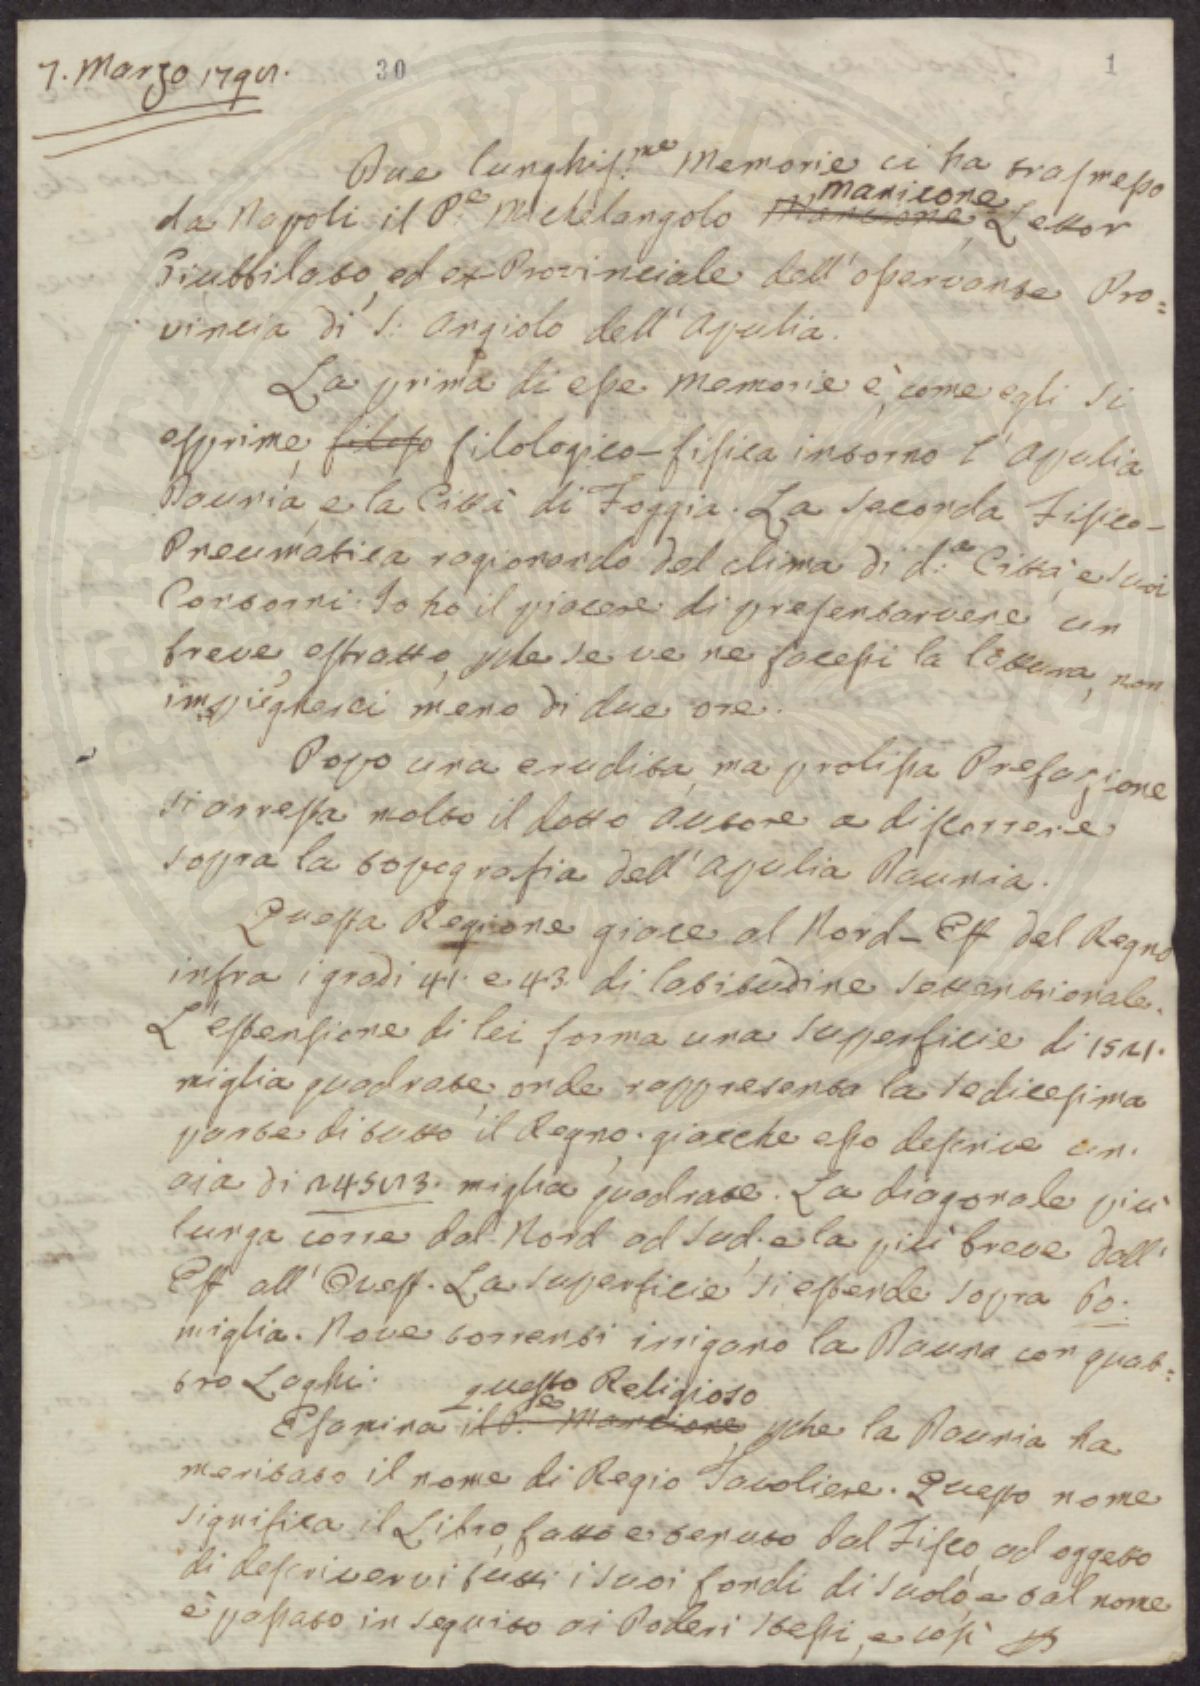 7. Marzo 1795.
30
1
Due lunghiss.me Memorie ci ha trasmesso
da Napoli il P.e Michelangolo Manicone, Lettor
Giubbilato, ed ex-Provinciale dell'osservante Pro=
vincia di S: Angiolo dell'Apulia.
La prima di esse Memorie è, come egli si
esprime, filoso filologico-fisica intorno l'Apulia
Daunia, e la Città di Foggia. La seconda Fisico-
Pneumatica ragionando del clima di d.a Città, e suoi
Contorni. Io ho il piacere di presentarvene un
breve estratto, pche se ve ne facessi la lettura, non
impiegherei meno di due ore.
Dopo una erudita, ma prolissa Prefazione
si arresta molto il dotto Autore a discorrere
sopra la topografia dell'Apulia Daunia.
Questa Regione giace al Nord-Est del Regno
infra i gradi 41. e 43. di latitudine settentrionale.
L'estensione di lei forma una superficie di 1521.
miglia quadrate, onde rappresenta la sedicesima
parte di tutto il Regno, giacche esso descrive un'
aia di 24523. miglia quadrate. La diagonale più
lunga corre dal Nord ad Sud, e la più breve dall'
Est all'Ovest. La superficie si estende sopra 60.
miglia. Nove torrenti irrigano la Dauna con quat=
tro Laghi.
questo Religioso
Esamina il P.e Marcione, pche la Daunia ha
meritato il nome di Regio Tavoliere. Questo nome
significa il Libro, fatto e tenuto dal Fisco ad oggetto
di descrivervi tutti i suoi fondi di suolo, e tal nome
è passato in seguito ai Poderi stessi, e così